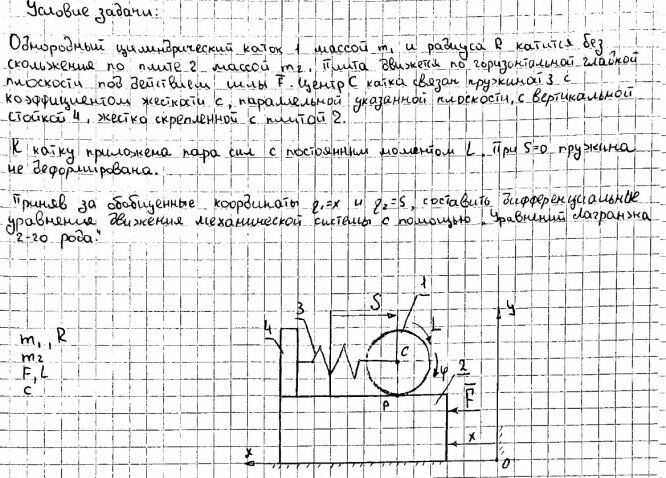 Условие задачи:
Однородный цилиндрический каток 1 массой m₁ и радиуса R катится без
скольжения по плите 2 массой m₂. Плита движется по горизонтальной гладкой
плоскости под действием силы F. Центр C катка связан пружиной 3 с
коэффициентом жесткости c, параллельной указанной плоскости, с вертикальной
стойкой 4, жестко скрепленной с плитой 2.
К катку приложена пара сил с постоянным моментом L. При S=0 пружина
не деформирована.
Приняв за обобщенные координаты q₁=x и q₂=S, составить дифференциальные
уравнения движения механической системы с помощью "Уравнений Лагранжа
2-го рода."
m₁, R
m₂
F, L
c
1
3
S
4
L
y
C
φ
2
P
F
x
x
O